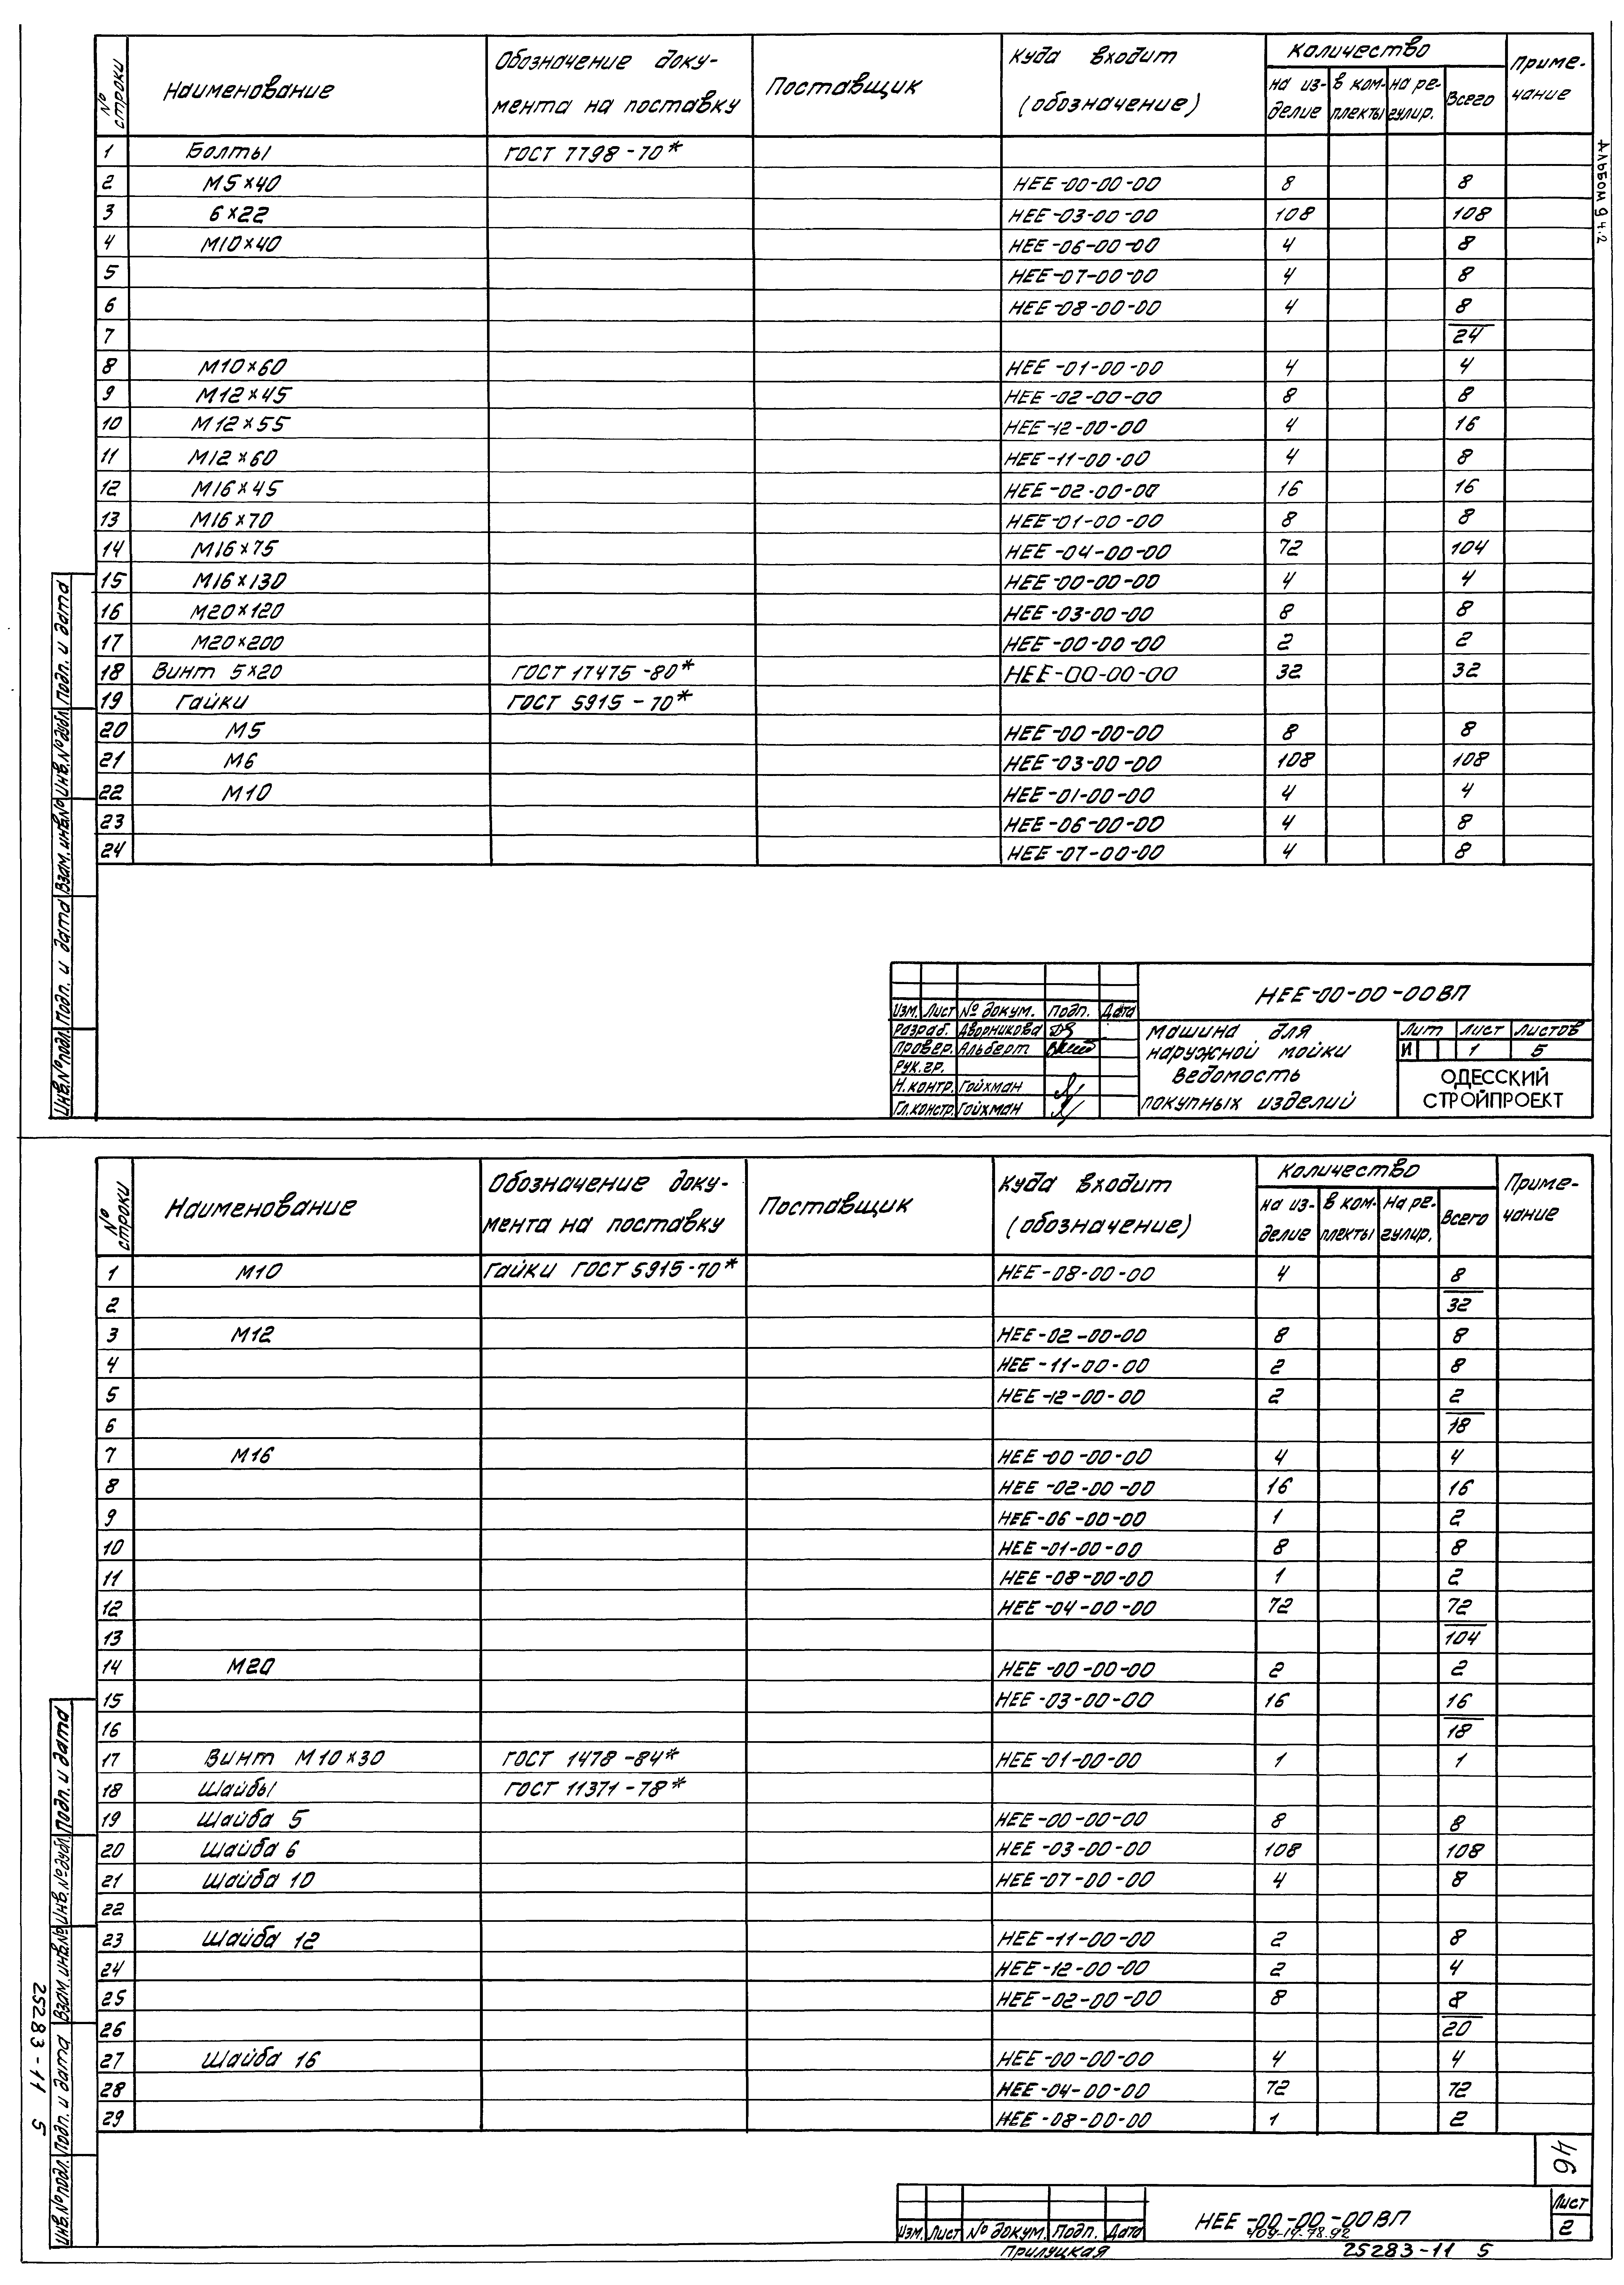 Альбом 9 ч.2
№ строки | Наименование | Обозначение доку-мента на поставку | Поставщик | Куда входит (обозначение) | Количество: на из-делие | в ком-плекты | на ре-гулир. | Всего | Приме-чание
1 Болты ГОСТ 7798-70*
2 М5×40 НЕЕ-00-00-00 8 8
3 6×22 НЕЕ-03-00-00 108 108
4 М10×40 НЕЕ-06-00-00 4 8
5 НЕЕ-07-00-00 4 8
6 НЕЕ-08-00-00 4 8
7 24
8 М10×60 НЕЕ-01-00-00 4 4
9 М12×45 НЕЕ-02-00-00 8 8
10 М12×55 НЕЕ-12-00-00 4 16
11 М12×60 НЕЕ-11-00-00 4 8
12 М16×45 НЕЕ-02-00-00 16 16
13 М16×70 НЕЕ-01-00-00 8 8
14 М16×75 НЕЕ-04-00-00 72 104
15 М16×130 НЕЕ-00-00-00 4 4
16 М20×120 НЕЕ-03-00-00 8 8
17 М20×200 НЕЕ-00-00-00 2 2
18 Винт 5×20 ГОСТ 17475-80* НЕЕ-00-00-00 32 32
19 Гайки ГОСТ 5915-70*
20 М5 НЕЕ-00-00-00 8 8
21 М6 НЕЕ-03-00-00 108 108
22 М10 НЕЕ-01-00-00 4 4
23 НЕЕ-06-00-00 4 8
24 НЕЕ-07-00-00 4 8
Инв.№ подл. Подп. и дата Взам. инв.№ Инв.№ дубл. Подп. и дата
НЕЕ-00-00-00ВП
Изм. Лист № докум. Подп. Дата
Разраб. Дворникова
Провер. Альберт
Рук.гр.
Н.контр. Гойхман
Гл.констр. Гойхман
Машина для
наружной мойки
Ведомость
покупных изделий
Лит Лист Листов
И 1 5
ОДЕССКИЙ
СТРОЙПРОЕКТ
№ строки | Наименование | Обозначение доку-мента на поставку | Поставщик | Куда входит (обозначение) | Количество: на из-делие | в ком-плекты | На ре-гулир. | Всего | Приме-чание
1 М10 Гайки ГОСТ 5915-70* НЕЕ-08-00-00 4 8
2 32
3 М12 НЕЕ-02-00-00 8 8
4 НЕЕ-11-00-00 2 8
5 НЕЕ-12-00-00 2 2
6 18
7 М16 НЕЕ-00-00-00 4 4
8 НЕЕ-02-00-00 16 16
9 НЕЕ-06-00-00 1 2
10 НЕЕ-01-00-00 8 8
11 НЕЕ-08-00-00 1 2
12 НЕЕ-04-00-00 72 72
13 104
14 М20 НЕЕ-00-00-00 2 2
15 НЕЕ-03-00-00 16 16
16 18
17 Винт М10×30 ГОСТ 1478-84* НЕЕ-01-00-00 1 1
18 Шайбы ГОСТ 11371-78*
19 Шайба 5 НЕЕ-00-00-00 8 8
20 Шайба 6 НЕЕ-03-00-00 108 108
21 Шайба 10 НЕЕ-07-00-00 4 8
22
23 Шайба 12 НЕЕ-11-00-00 2 8
24 НЕЕ-12-00-00 2 4
25 НЕЕ-02-00-00 8 8
26 20
27 Шайба 16 НЕЕ-00-00-00 4 4
28 НЕЕ-04-00-00 72 72
29 НЕЕ-08-00-00 1 2
Инв.№ подл. Подп. и дата Взам. инв.№ Инв.№ дубл. Подп. и дата
25283-11 5
46
Изм. Лист № докум. Подп. Дата
НЕЕ-00-00-00ВП
409-14-78.92
Лист
2
Прилуцкая
25283-11 5